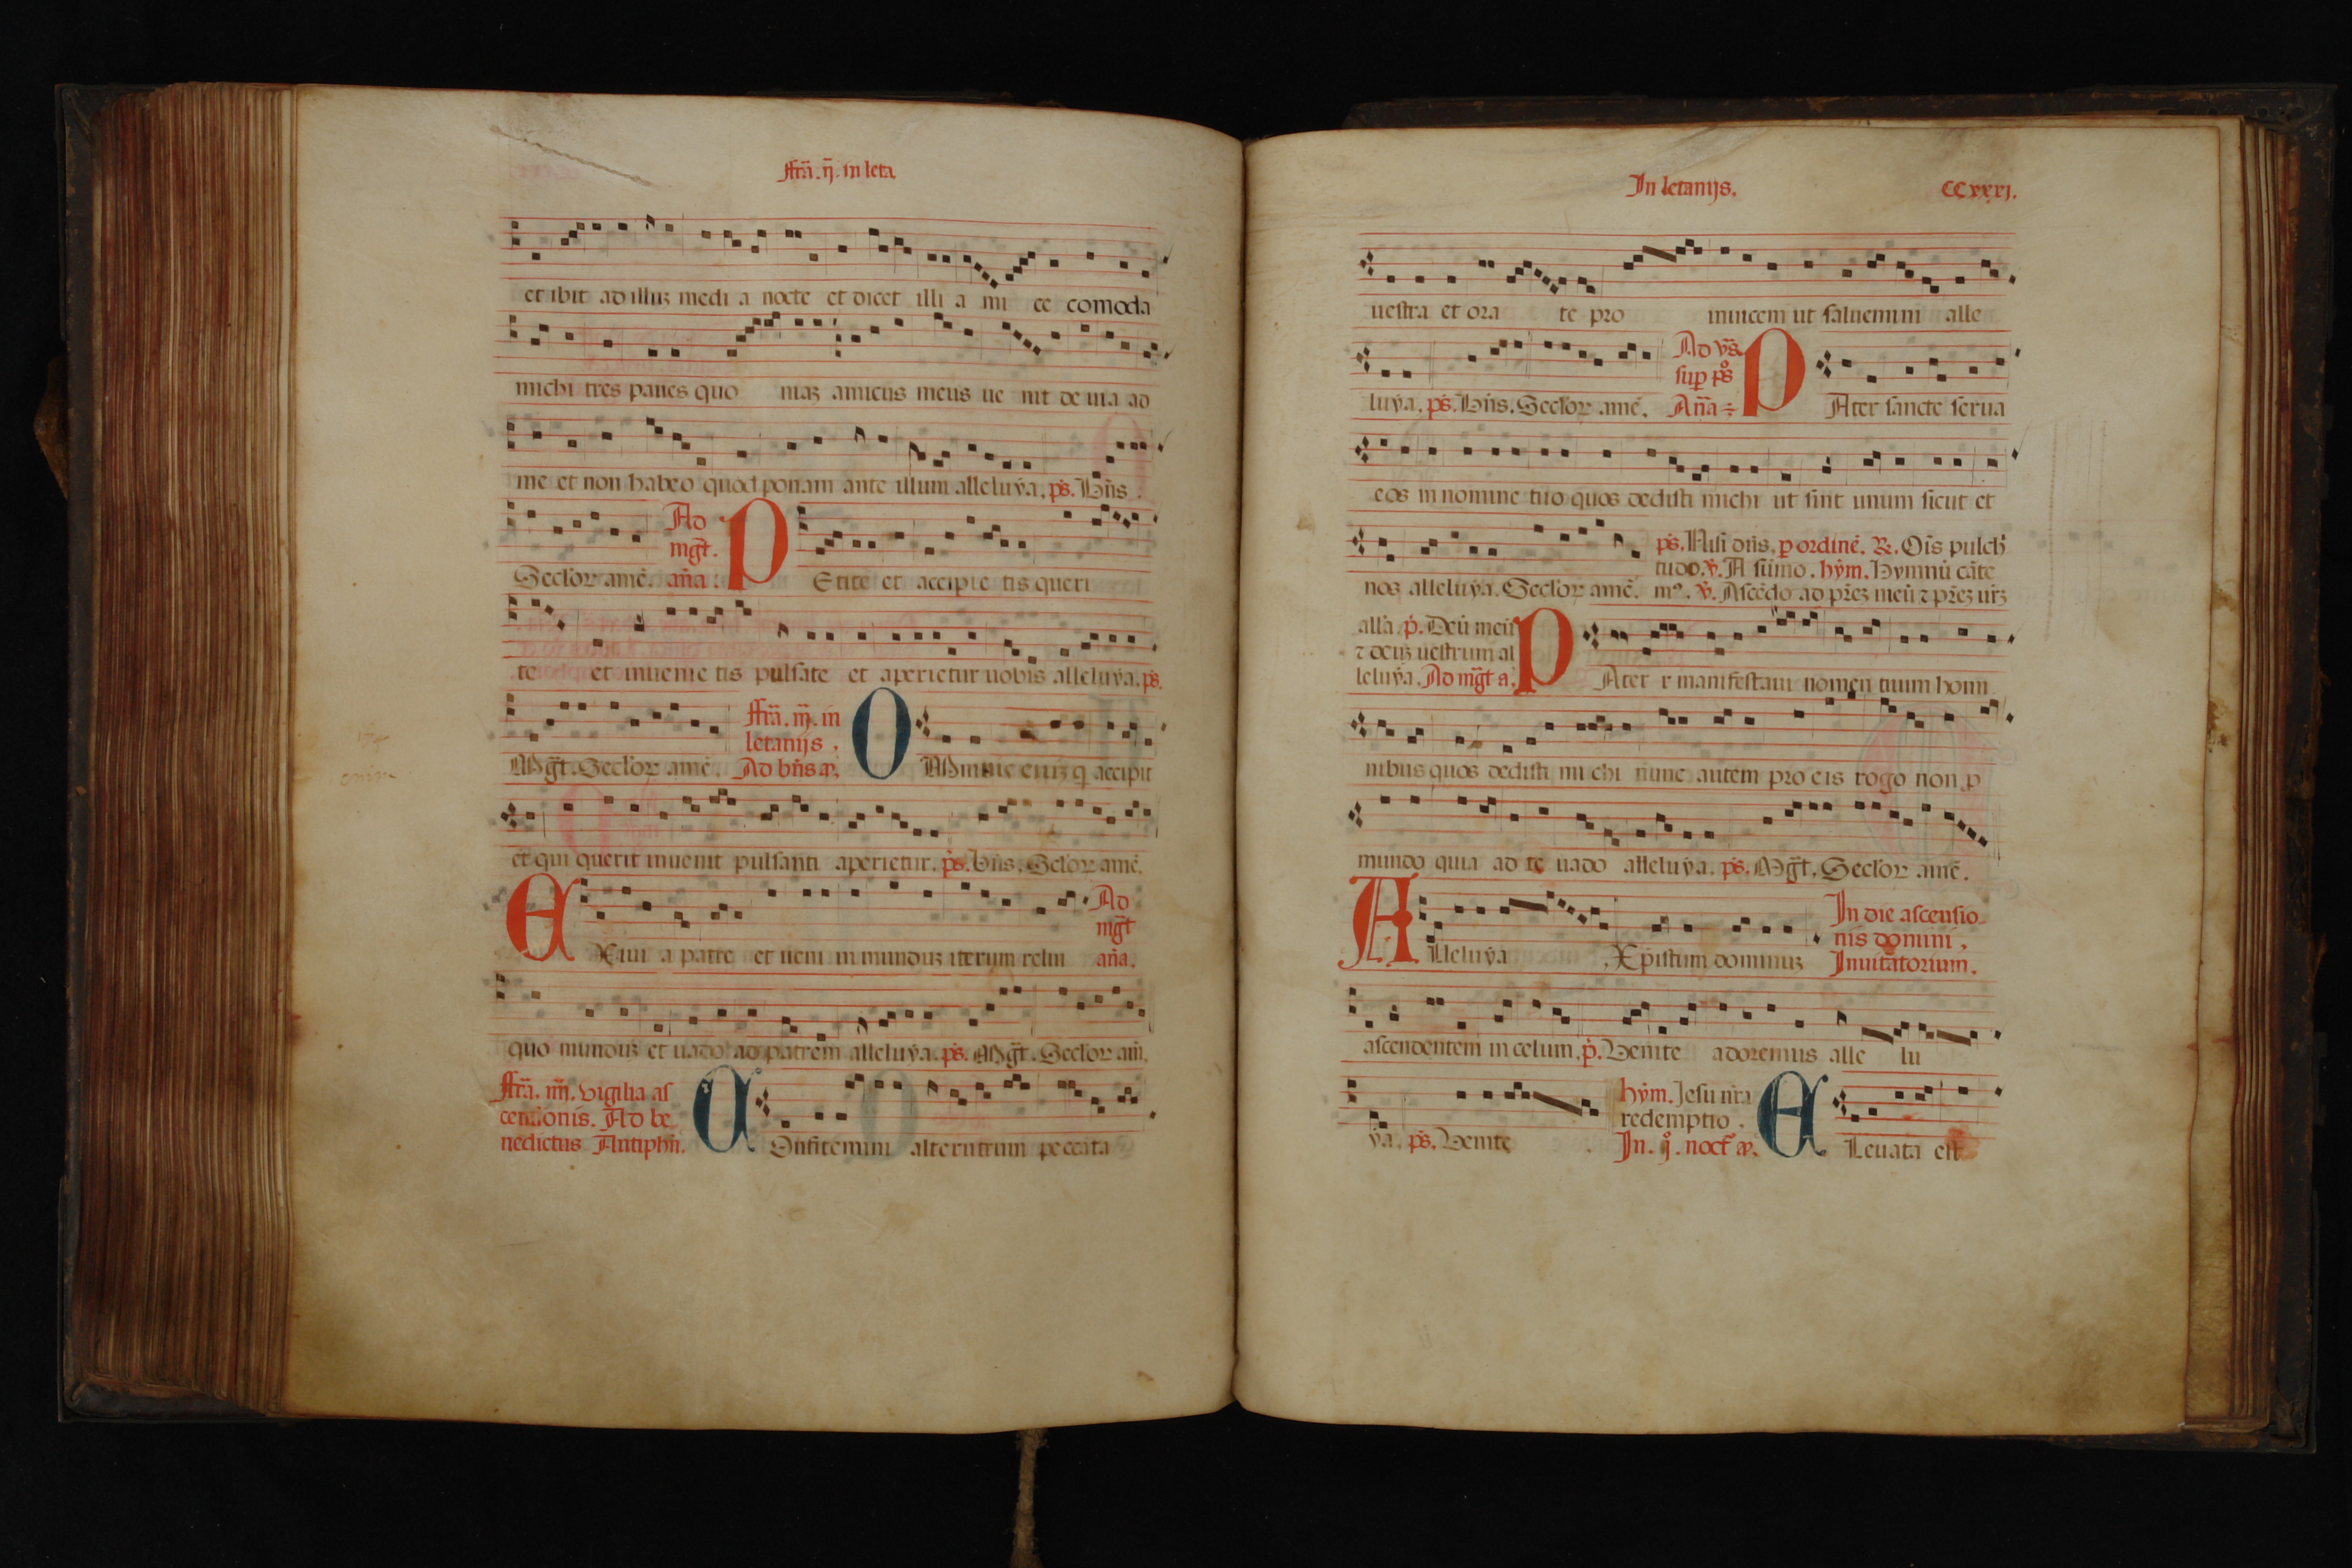 ffr̃a. ij. in leta.
et ibit ad illuꝫ medi a nocte et dicet illi a mi ce comoda
michi tres panes quo niaꝫ amicus meus ue nit de uia ad
me et non habeo quod ponam ante illum alleluẏa. ps̃. Bñs.
Seclo᷑ꝝ amẽ. Ad mg̃t. an̄a: PEtite et accipie tis queri
te et inuenie tis pulsate et aperietur uobis alleluẏa. ps̃.
Mg̃t. Seclo᷑ꝝ amẽ. ffr̃a. iij. in
letanijs.
Ad bñs a. OMnis eniꝫ q̇ accipit
et qui querit inuenit pulsanti aperietur. ps̃. bñs. Sclo᷑ꝝ amẽ.
EXiui a patre et ueni in munduꝫ iterum relin Ad mg̃t an̄a.
quo munduꝫ et uado ad patrem alleluẏa. ps̃. Mg̃t. Seclo᷑ꝝ am̃.
ffr̃a. iiij. vigilia as
censionis. Ad be
nedictus Antiphñ. COnfitemini alterutrum peccata
In letanijs. CCxxxj.
uestra et ora te pro inuicem ut saluemini alle
luẏa. ps̃. Bñs. Seclo᷑ꝝ amẽ. Ad vs̃.
sup ps̃
An̄a PAter sancte serua
eos in nomine tuo quos dedisti michi ut sint unum sicut et
nos alleluẏa. Seclo᷑ꝝ amẽ. ps̃. Nisi dñs. ꝑ ordinẽ. ℞. Oĩs pulch̃
tudo. v̇. A sũmo. hẏm. Hymnũ cãte
mꝰ. v̇. Ascẽdo ad pr̃eꝫ meũ ⁊ pr̃eꝫ ur̃ꝫ
all̃a. p̃. Deũ meũ
⁊ deuꝫ uestrum al
leluẏa. Ad mg̃t a. PAter manifestaui nomen tuum homi
nibus quos dedisti mi chi nunc autem pro eis rogo non ꝓ
mundo quia ad te uado alleluẏa. ps̃. Mg̃t. Seclo᷑ꝝ amẽ.
ALleluẏa Xpistum dominuꝫ In die ascensio
nis domini.
Inuitatorium.
ascendentem in celum. p̃. Venite adoremus alle lu
ẏa. ps̃. Venite hẏm. Jesu nr̃a
redemptio.
In. jͦ. noct̃ a. ELeuata est